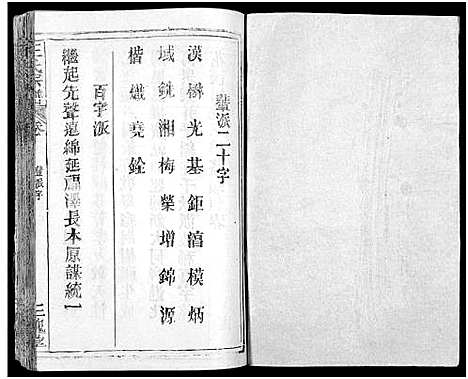 輩派二十字
漢樹光基鉅滇模炳
域銑湘梅榮增錦源
楷熾堯銓
百字派
繼起先聲遠綿延福澤長木原謀統一
三槐堂